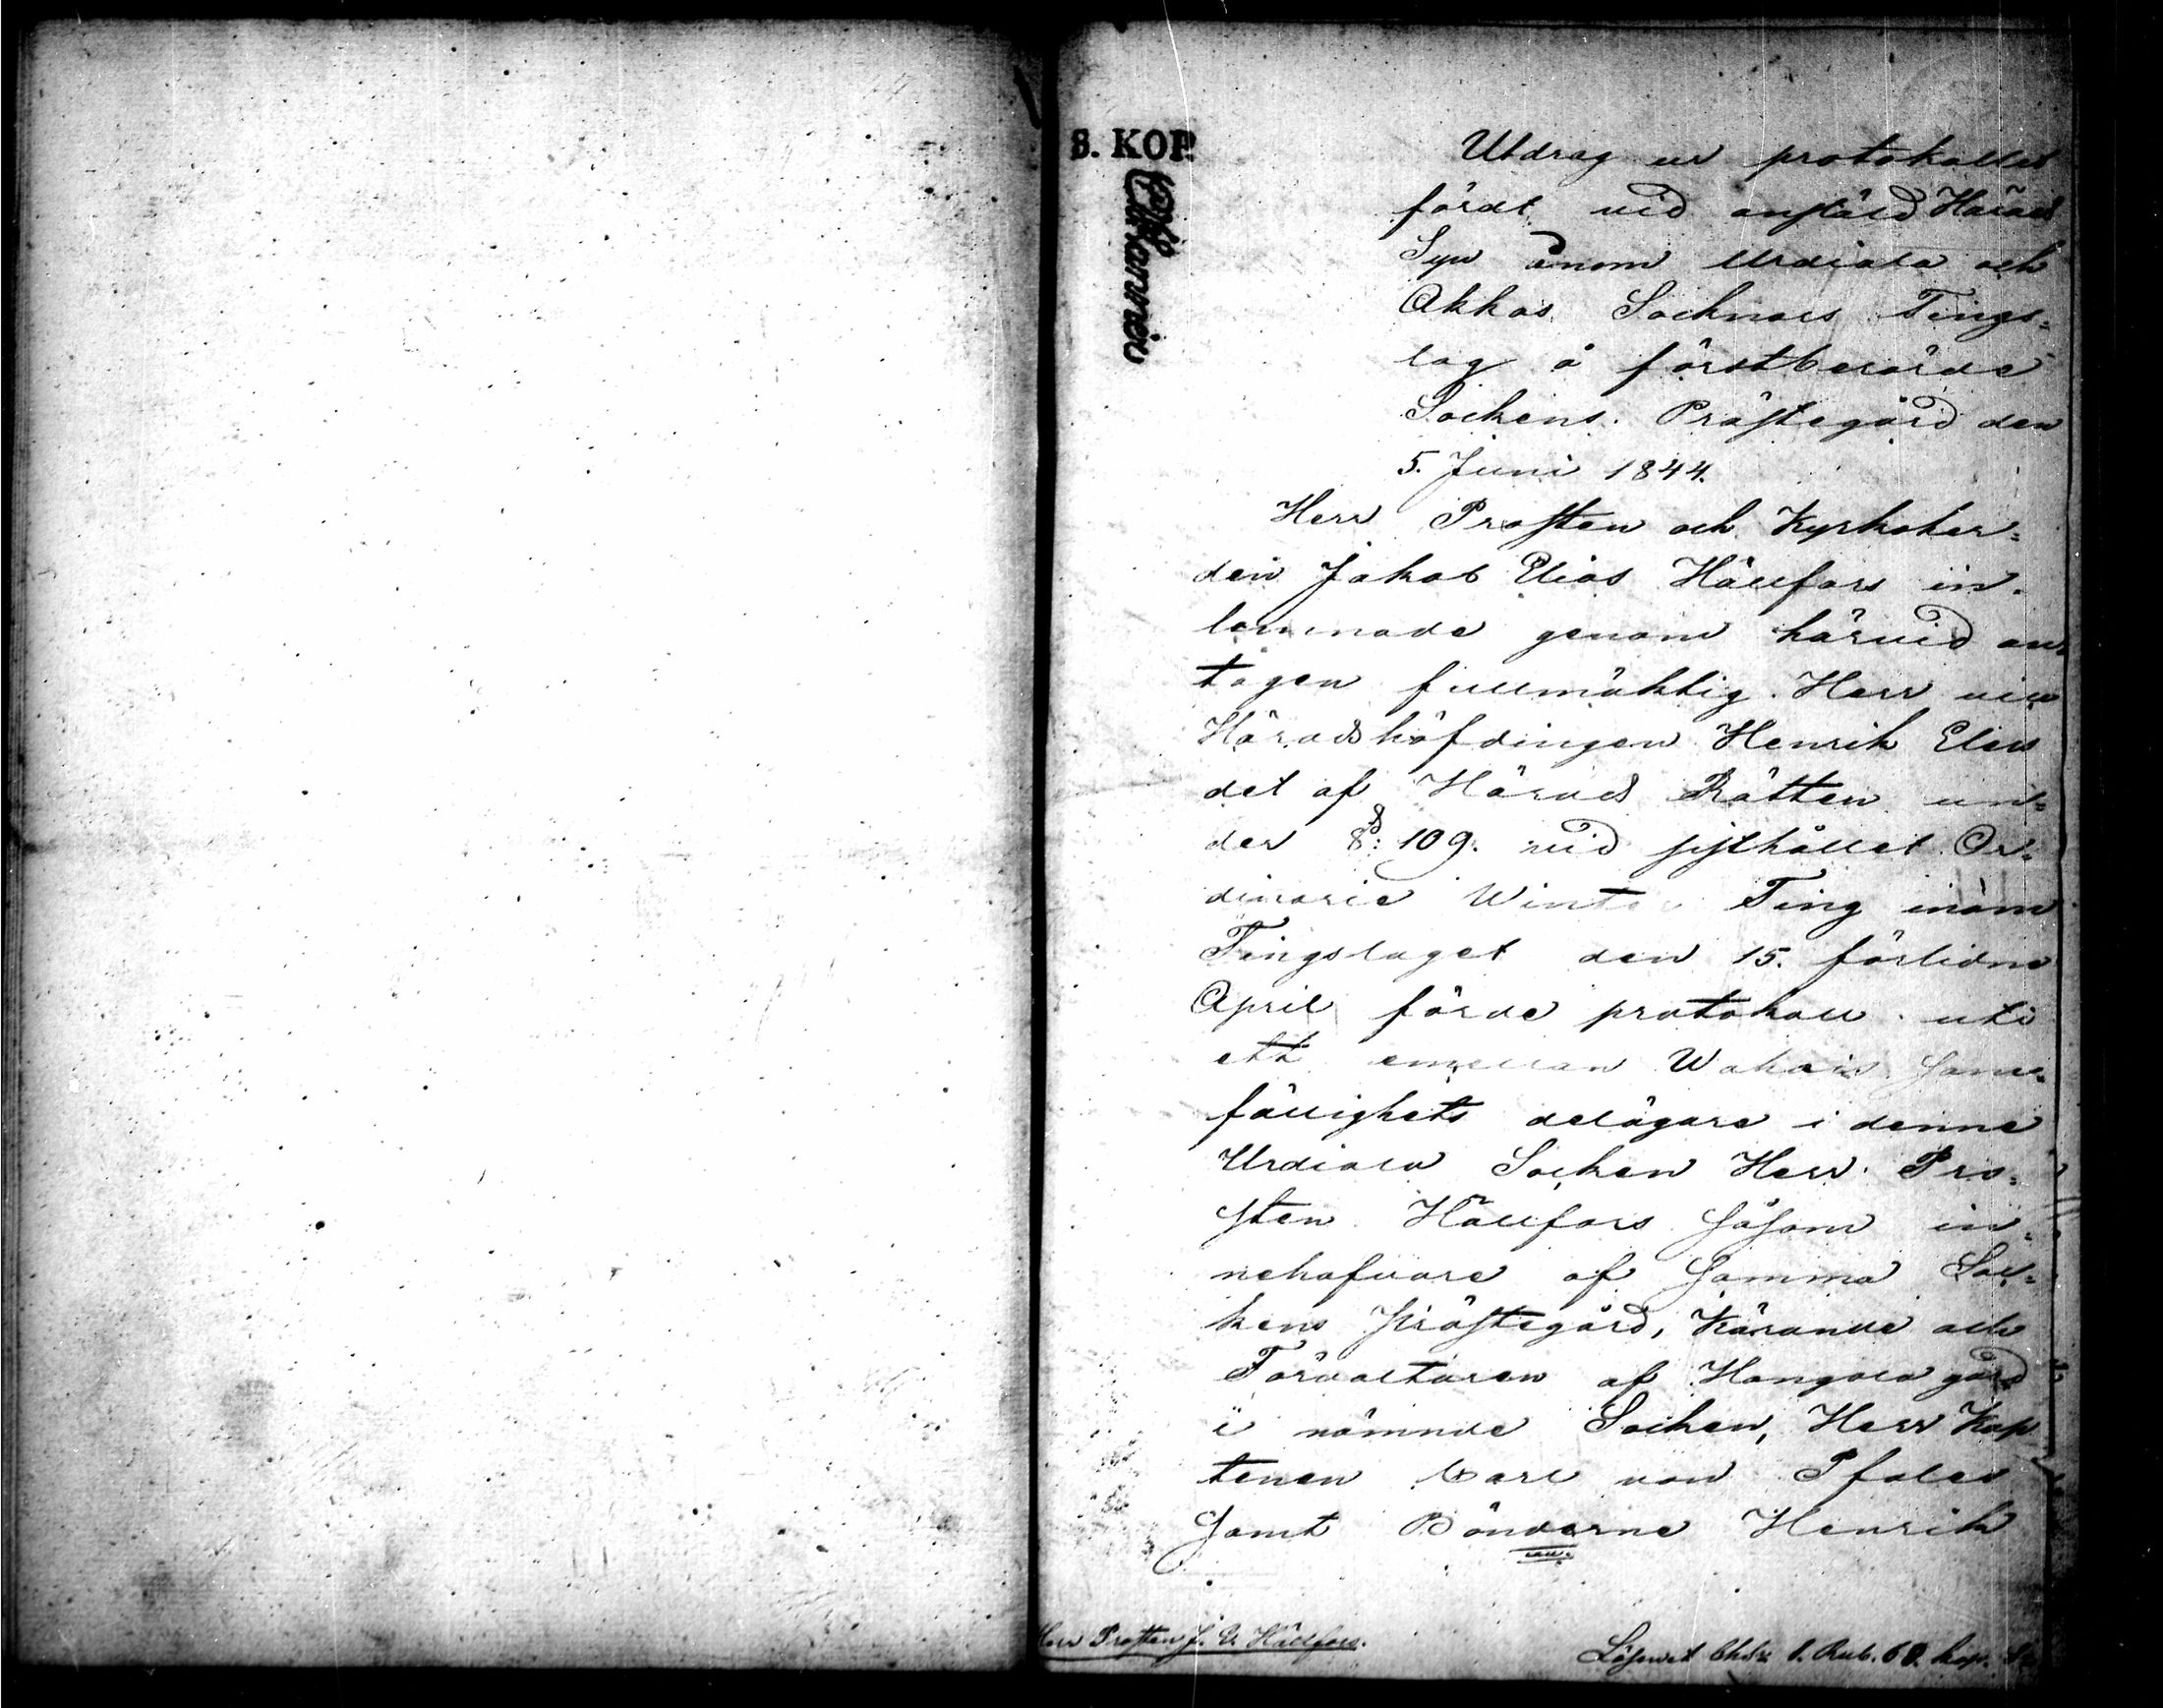 8. KOP.
Utdrag ur protokollet
fördt vid anstäld Härads
Syn inom Urdiala och
Akkas Socknars Tings=
lag å förstberörde
Sockens Prästegård den
5. Juni 1844.
Herr Prosten och Kyrkoher=
den Jakob Elias Hällfors in=
lemnade genom härvid an=
tagen fullmäktig Herr vice
Häradshöfdingen Henrik
det af Härads Rätten un=
der §: 109. vid sisthållet Or=
dinarie Winter Ting inom
Tingslaget den 15. förlidne
April förde protokoll uti
ett emellan Wahais Sam=
fällighets delägare i denne
Urdiala Socken Herr Pro=
sten Hällfors såsom in=
nehafvare af Samma Soc=
kens Prästegård, Kärande och
Förvaltaren af Hongola gård
i nämnde Socken, Herr Kap
tenen Carl von Pfaler
Samt Bönderne Henrik
Herr Prosten J. E. Hällfors.
Lösnet Chsr: 1. Rub. 60. kop.